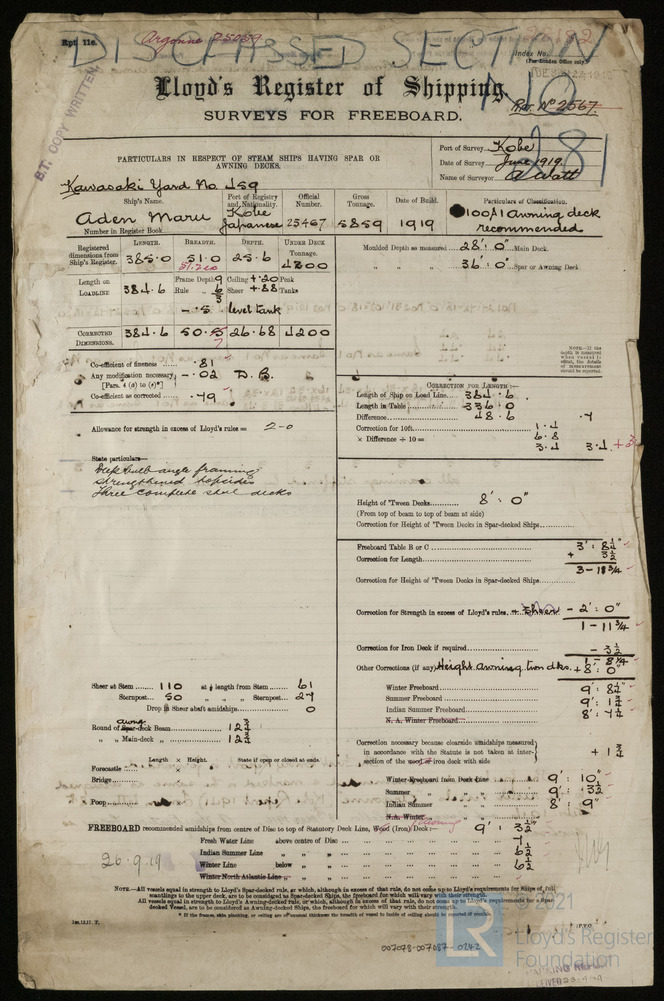 Rpt. 11c.
Argonne 25059
DISCLASSED SECTION
Index No.
(For London Office only.)
Lloyd's Register of Shipping.
Rpt. No 2567
SURVEYS FOR FREEBOARD.
B.T. COPY WRITTEN
PARTICULARS IN RESPECT OF STEAM SHIPS HAVING SPAR OR
AWNING DECKS.
Port of Survey Kobe
Date of Survey June 1919.
Name of Surveyor A Watt
Kawasaki Yard No. 459
Ship's Name. Port of Registry and Nationality. Official Number. Gross Tonnage. Date of Build. Particulars of Classification.
Aden Maru Kobe Japanese 25467 5859 1919 100A1 Awning deck recommended
Number in Register Book
Registered dimensions from Ship's Register. LENGTH. BREADTH. DEPTH. UNDER DECK Tonnage.
385.0 51.0 25.6 4200
Moulded Depth as measured 28' : 0" Main Deck.
" " 36' : 0" Spar or Awning Deck
Length on LOADLINE 384.6 Frame Depth 9 Rule 6 3 Ceiling +.20 Peak Sheer +.88 Tanks
- .5 level tank
CORRECTED DIMENSIONS. 384.6 50.5 26.68 4200
NOTE.—If the depth is measured when vessel is afloat, the details of measurement should be reported.
Co-efficient of fineness .81
Any modification necessary - .02 D.B.
[Pars. 4 (a) to (e)*]
Co-efficient as corrected .79
CORRECTION FOR LENGTH:—
Length of Ship on Load Line 384.6
Length in Table 336.0
Difference 48.6
Correction for 10ft. 1.4 .7
× Difference ÷ 10 = 6.8 3.4 3.4
Allowance for strength in excess of Lloyd's rules = 2-0
State particulars—
Deep bulb angle framing
Strengthened topsides
Three complete steel decks
Height of 'Tween Decks 8' : 0"
(From top of beam to top of beam at side)
Correction for Height of 'Tween Decks in Spar-decked Ships
Freeboard Table B or C 3' : 8¼"
Correction for Length + 3½
3 - 11¾
Correction for Height of 'Tween Decks in Spar-decked Ships
Correction for Strength in excess of Lloyd's rules. + Sheer - 2' : 0"
1 - 11¾
Correction for Iron Deck if required - 3½
1 - 8¼
Other Corrections (if any) Height Awning tween dks. + 8' : 0"
Sheer at Stem 110 at ⅛ length from Stem 61
Sternpost 50 " " Sternpost 27
Drop in Sheer abaft amidships 0
Round of Awng. Spar-deck Beam 12¾
" " Main-deck " 12¾
Winter Freeboard 9' : 8¼"
Summer Freeboard 9' : 1¾
Indian Summer Freeboard 8' : 7¼
N. A. Winter Freeboard
Length × Height. State if open or closed at ends.
Forecastle
Bridge
Poop
Correction necessary because clearside amidships measured
in accordance with the Statute is not taken at inter-
section of the wood or iron deck with side + 1¾
Winter Freeboard from Deck Line 9' : 10"
Summer " " 9' : 3½
Indian Summer 8' : 9"
N.A. Winter
FREEBOARD recommended amidships from centre of Disc to top of Statutory Deck Line, Wood (Iron) Deck:— Awning 9' : 3½"
Fresh Water Line above centre of Disc 7
Indian Summer Line " " 6½
Winter Line below " 6½
Winter North Atlantic Line " "
26.9.19
NOTE.—All vessels equal in strength to Lloyd's Spar-decked rule, or which, although in excess of that rule, do not come up to Lloyd's requirements for Ships of full
scantlings to the upper deck, are to be considered as Spar-decked Ships, the freeboard for which will vary with their strength.
All vessels equal in strength to Lloyd's Awning-decked rule, or which, although in excess of that rule, do not come up to Lloyd's requirements for a Spar-
decked Vessel, are to be considered as Awning-decked Ships, the freeboard for which will vary with their strength.
* If the frames, skin planking, or ceiling are of unusual thickness the breadth of vessel to inside of ceiling should be reported if possible.
[P.T.O.
007078-007087-0242
© 2021
Lloyd's Register
Foundation